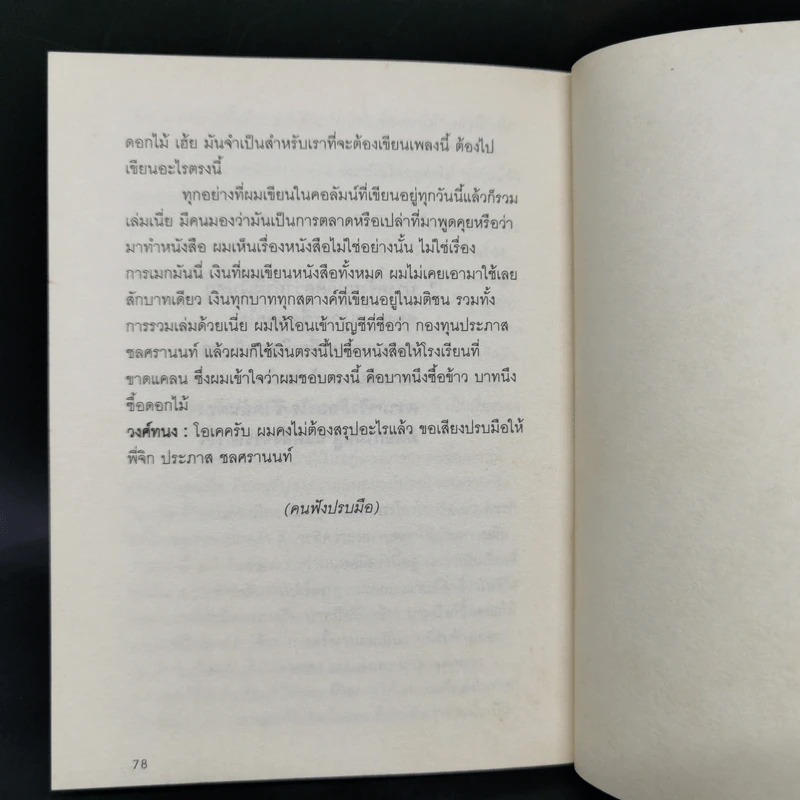 ดอกไม้ เฮ้ย มันจำเป็นสำหรับเราที่จะต้องเขียนเพลงนี้ ต้องไป
เขียนอะไรตรงนี้
ทุกอย่างที่ผมเขียนในคอลัมน์ที่เขียนอยู่ทุกวันนี้แล้วก็รวม
เล่มเนี่ย มีคนมองว่ามันเป็นการตลาดหรือเปล่าที่มาพูดคุยหรือว่า
มาทำหนังสือ ผมเห็นเรื่องหนังสือไม่ใช่อย่างนั้น ไม่ใช่เรื่อง
การเมกมันนี่ เงินที่ผมเขียนหนังสือทั้งหมด ผมไม่เคยเอามาใช้เลย
สักบาทเดียว เงินทุกบาททุกสตางค์ที่เขียนอยู่ในมติชน รวมทั้ง
การรวมเล่มด้วยเนี่ย ผมให้โอนเข้าบัญชีที่ชื่อว่า กองทุนประภาส
ชลศรานนท์ แล้วผมก็ใช้เงินตรงนี้ไปซื้อหนังสือให้โรงเรียนที่
ขาดแคลน ซึ่งผมเข้าใจว่าผมชอบตรงนี้ คือบาทนึงซื้อข้าว บาทนึง
ซื้อดอกไม้
วงศ์ทนง : โอเคครับ ผมคงไม่ต้องสรุปอะไรแล้ว ขอเสียงปรบมือให้
พี่จิก ประภาส ชลศรานนท์
(คนฟังปรบมือ)
78